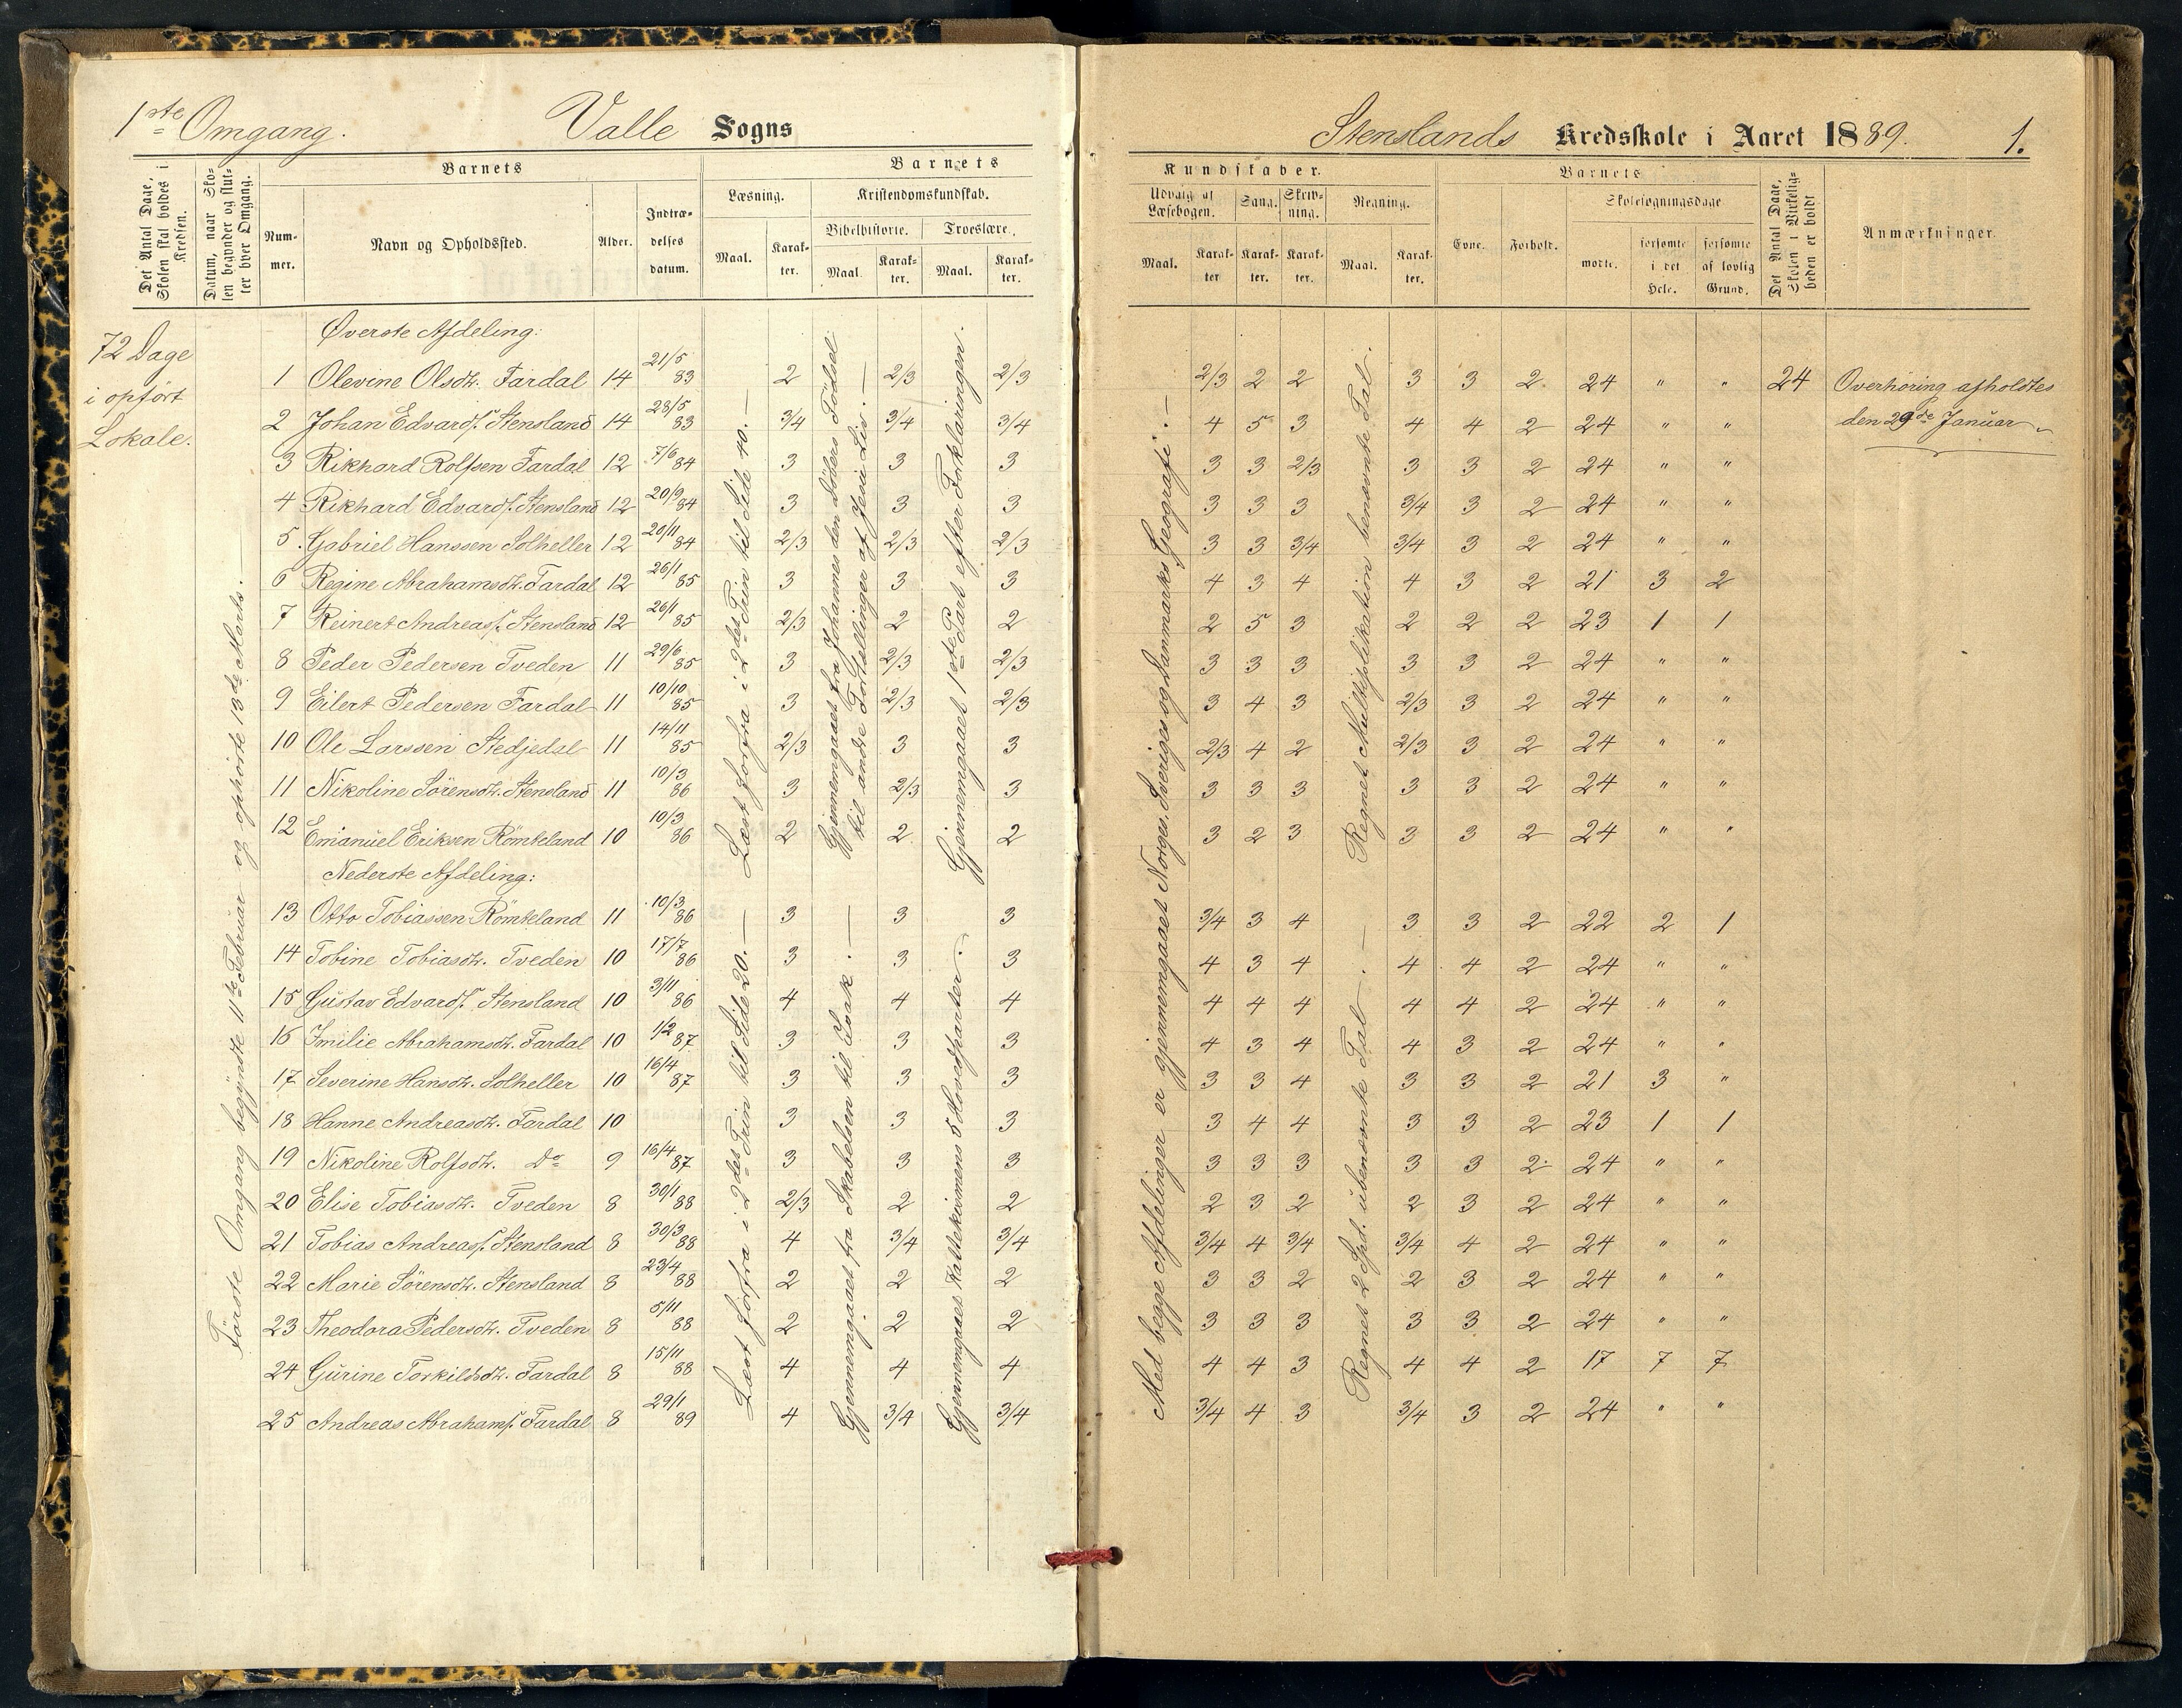 1ste Omgang. Valle Sogns
Det Antal Dage, Skolen skal holdes i Kredsen.
Datum, naar Skolen begynder og slutter hver Omgang.
Barnets
Nummer.
Navn og Opholdssted.
Alder.
Indtrædelses datum.
Barnets
Læsning.
Maal.
Karakter.
Kristendomskundskab.
Bibelhistorie.
Maal.
Karakter.
Troeslære.
Maal.
Karakter.
72 Dage
i opført
Lokale.
Første Omgang begyndte 11te Februar og ophørte 13de Marts.—
Øverste Afdeling:
1 Olevine Olsdtr. Fardal 14 21/5 83 2 2/3 2/3
2 Johan Edvards. Stensland 14 28/5 83 3/4 3/4 3/4
3 Rikhard Rolfsen Fardal 12 7/6 84 3 3 3
4 Rikhard Edvards. Stensland 12 20/9 84 3 3 3
5. Gabriel Hanssen Solheller 12 20/11 84 2/3 2/3 2/3
6 Regine Abrahamsdtr. Fardal 12 26/1 85 3 3 3
7 Reinert Andreass. Stensland 12 26/1 85 2/3 2 2
8 Peder Pedersen Tveden 11 29/6 85 3 2/3 2/3
9 Eilert Pedersen Fardal 11 10/10 85 3 2/3 2/3
10 Ole Larssen Stedjedal 11 14/11 85 2/3 3 3
11 Nikoline Sörensdtr. Stensland 11 10/3 86 3 2/3 3
12 Emanuel Eriksen Römteland 10 10/3 86 2 2. 2
Læst forfra i 2det Trin til Side 40.—
Gjennemgaaet fra Johannes den Döbers Födsel
til andre Fortællinger af Jesu Liv.—
Gjennemgaaet 1ste Part efter Forklaringen.
Nederste Afdeling:
13 Otto Tobiassen Römteland 11 10/3 86 3 3 3
14 Tobine Tobiasdtr. Tveden 10 17/7 86 3 3 3
15 Gustav Edvards. Stensland 10 3/11 86 4 4 4
16 Emilie Abrahamsdtr. Fardal 10 1/2 87 3 3 3
17 Severine Hansdtr. Solheller 10 16/4 87 3 3 3
18 Hanne Andreasdtr. Fardal 10 3 3 3
19 Nikoline Rolfsdtr. Do 9 16/4 87 3 3 3
20 Elise Tobiasdtr. Tveden 8 30/1 88 2/3 2 2
21 Tobias Andreass. Stensland 8 30/3 88 4 3/4 3/4
22 Marie Sörensdtr. Stensland 8 23/4 88 2 2 2
23 Theodora Pedersdtr. Tveden 8 5/11 88 2 2 2
24 Gurine Torkildsdtr. Fardal 8 15/11 88 4 4 4
25 Andreas Abrahams. Fardal 8 29/1 89 4 3/4 3/4
Læst forfra i 2det Trin til Side 20.—
Gjennemgaaet fra Skabelsen til Isak.—
Gjennemgaaet Kattekismens 5 Hovedparter.
Stenslands Kredsskole i Aaret 1889. 1.
Kundskaber.
Udvalg af Læsebogen.
Maal.
Karakter
Sang.
Karakter.
Skrivning.
Karakter.
Regning.
Maal.
Karakter.
Barnets
Evne.
Forhold.
Skolesøgningsdage
mødte.
forsømte i det Hele.
forsømte af lovlig Grund.
Det Antal Dage, Skolen i Virkeligheden er holdt
Anmærkninger.
Med begge Afdelinger er gjennemgaaet Norges, Sveriges og Danmarks Geografi.—
Regnet Multiplikation benævnte Tal.
2/3 2 2 3 3 2. 24 " " 24 Overhøring afholdtes
4 5 3 4 4 2 24 " " den 29de Januar
3 3 2/3 3 3 2 24 " "
3 3 3 3/4 3 2 24 " "
3 3 3/4 3/4 3 2 24 " "
4 3 4 4 3 2 21 3 2
2 5 3 2 2 2 23 1 1
3 3 3 3 3 2 24 " "
3 4 3 2/3 3 2 24 " "
2/3 4 2 2/3 3 2 24 " "
3 3 3 3 3 2 24 " "
3 2 3 3 3 2 24 " "
Regnet 2 Spd. ubenævnte Tal.—
3/4 3 4 3 3 2 22 2 1
4 3 4 4 4 2 24 " "
4 4 4 4 4 2 24 " "
4 3 4 4 3 2 24 " "
3 3 4 3 3 2 21 3 "
3 4 4 3 3 2 23 1 1
3 3 3 3 3 2. 24 " "
2 3 2 2 3 2 24 " "
3/4 4 3/4 3/4 4 2 24 " "
3 3 2 2 3 2 24 " "
3 3 3 3 3 2 24 " "
4 4 3 4 4 2 17 7 7
3/4 4 3 3/4 3 2 24 " "